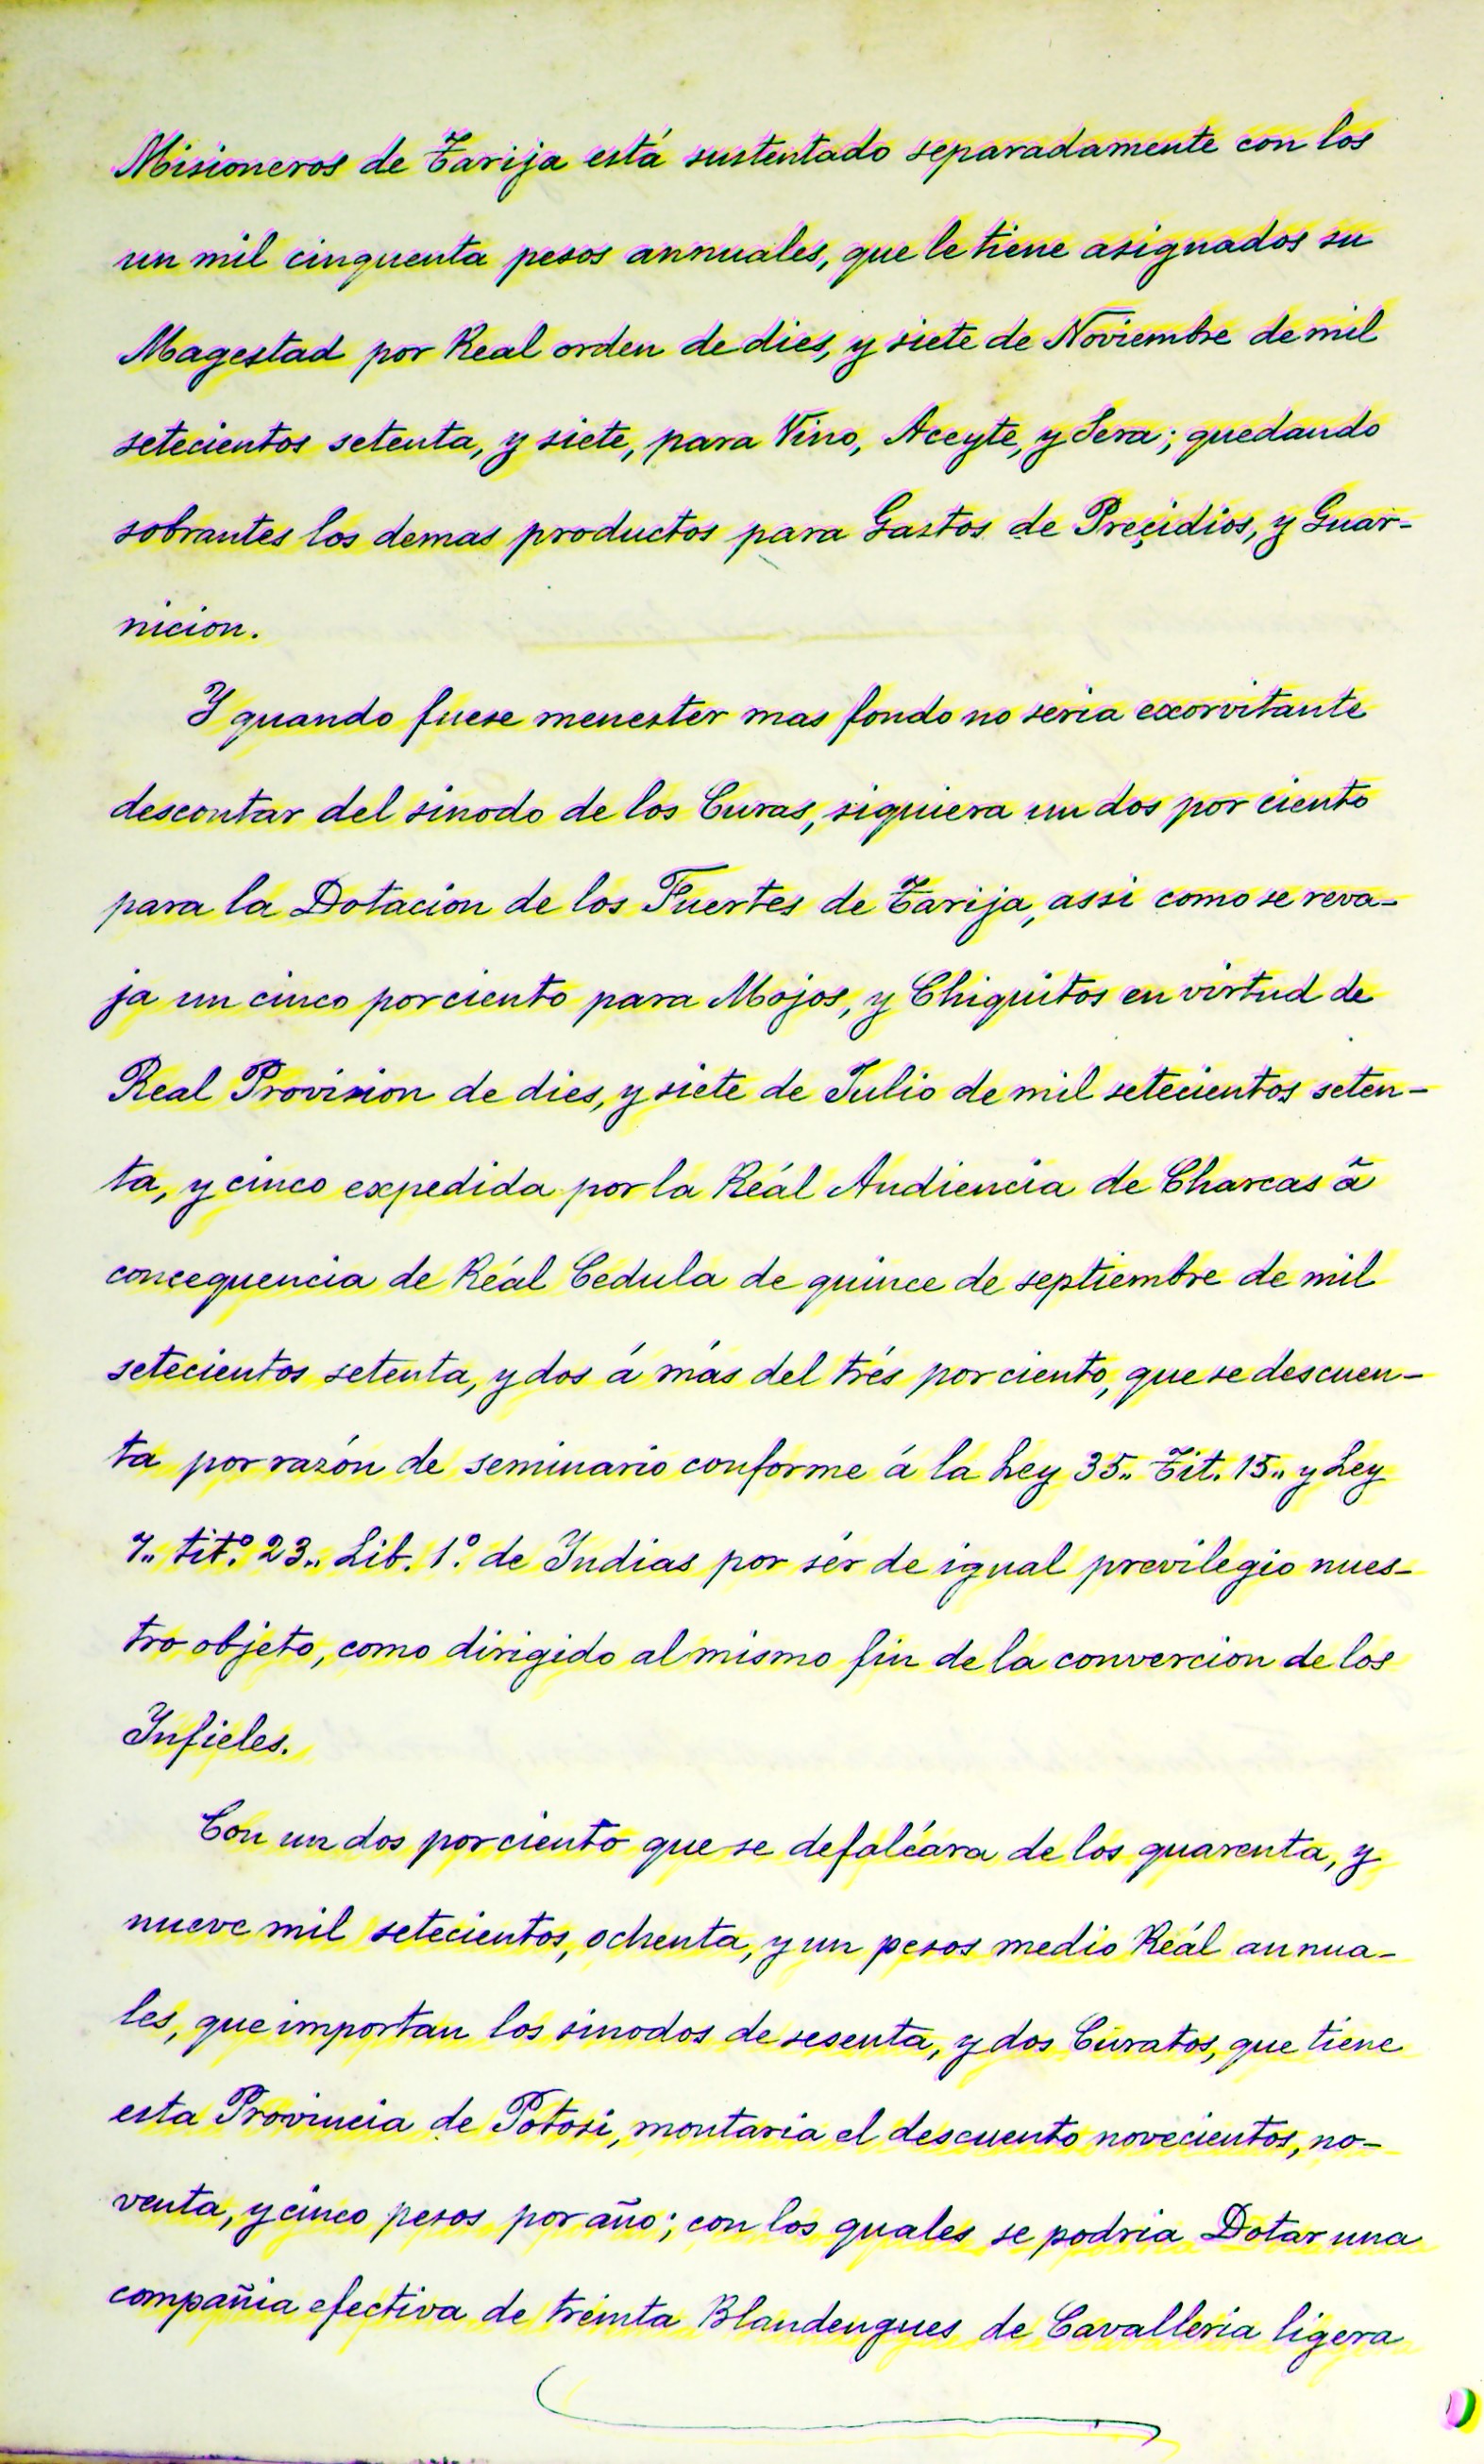 Misioneros de Tarija está sustentado separadamente con los
un mil cinquenta pesos annuales, que le tiene asignados su
Magestad por Real orden de dies, y siete de Noviembre de mil
setecientos setenta, y siete, para Vino, Aceyte, y Sera; quedando
sobrantes los demas productos para Gastos de Preçidios, y Guar-
nicion.
Y quando fuese menester mas fondo no seria exorvitante
descontar del sinodo de los Curas, siquiera un dos por ciento
para la Dotacion de los Fuertes de Tarija, assi como se reva-
ja un cinco por ciento para Mojos, y Chiquitos en virtud de
Real Provision de dies, y siete de Julio de mil setecientos seten-
ta, y cinco expedida por la Reál Audiencia de Charcas ã
concequencia de Reál Cedula de quince de septiembre de mil
setecientos setenta, y dos á más del trés por ciento, que se descuen-
ta por razón de seminario conforme á la Ley 35.. Tit. 15.. y Ley
7.. titº. 23.. Lib. 1º. de Indias por sér de igual previlegio nues-
tro objeto, como dirigido al mismo fin de la convercion de los
Infieles.
Con un dos por ciento que se defalcára de los quarenta, y
nueve mil setecientos, ochenta, y un pesos medio Reál annua-
les, que importan los sinodos de sesenta, y dos Curatos, que tiene
esta Provincia de Potosi, montaria el descuento novecientos, no-
venta, y cinco pesos por año; con los quales se podria Dotar una
compañia efectiva de treinta Blandengues de Cavalleria ligera